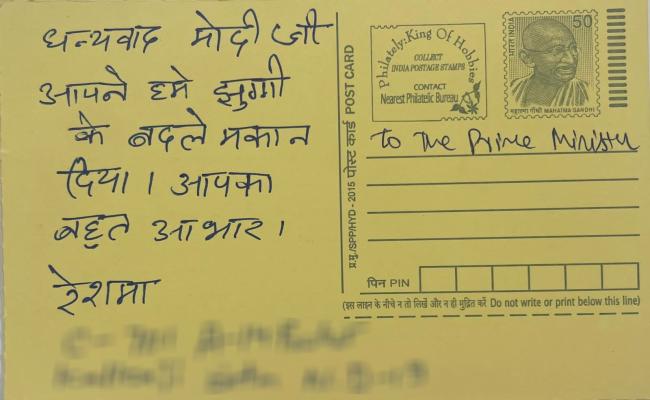 धन्यवाद मोदी जी
आपने हमे झुग्गी
के बदले मकान
दिया। आपका
बहुत आभार।
रेशमा
प्र.मु./SPP/HYD - 2015 पोस्ट कार्ड POST CARD
Philately: King Of Hobbies
COLLECT
INDIA POSTAGE STAMPS
CONTACT
Nearest Philatelic Bureau
भारत INDIA
50
महात्मा गाँधी MAHATMA GANDHI
To The Prime Minister
पिन PIN
(इस लाइन के नीचे न तो लिखें और न ही मुद्रित करें Do not write or print below this line)